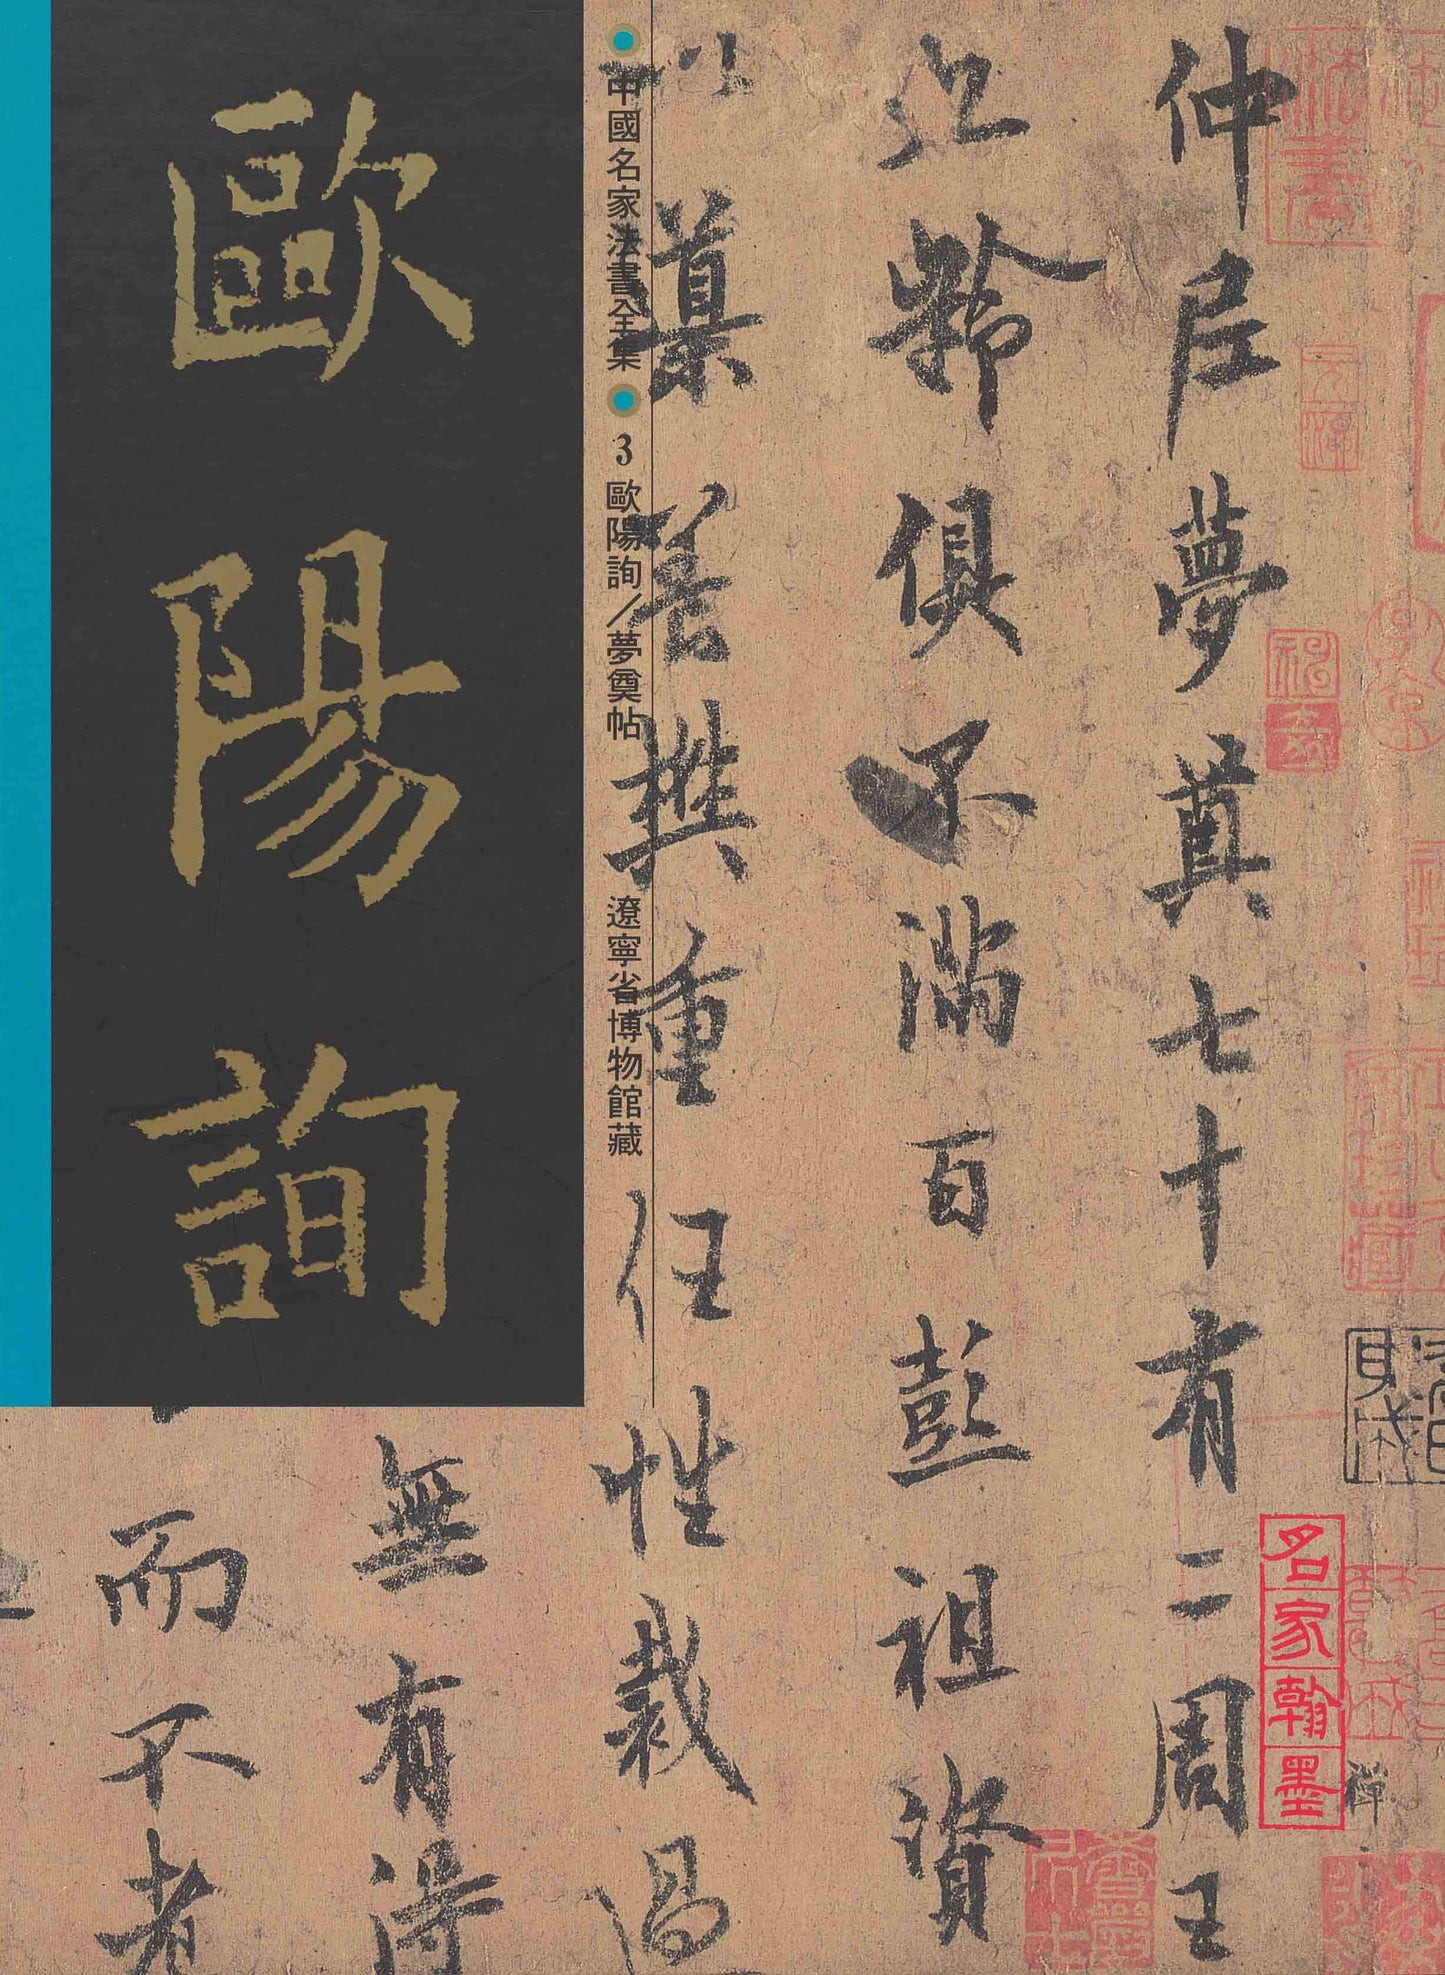 歐陽詢
中國名家法書全集
3 歐陽詢／夢奠帖
遼寧省博物館藏
仲尼夢奠七十有二周王
九齡俱不滿百彭祖資
以導養樊重任性裁過
無有得
而不老
名家翰墨